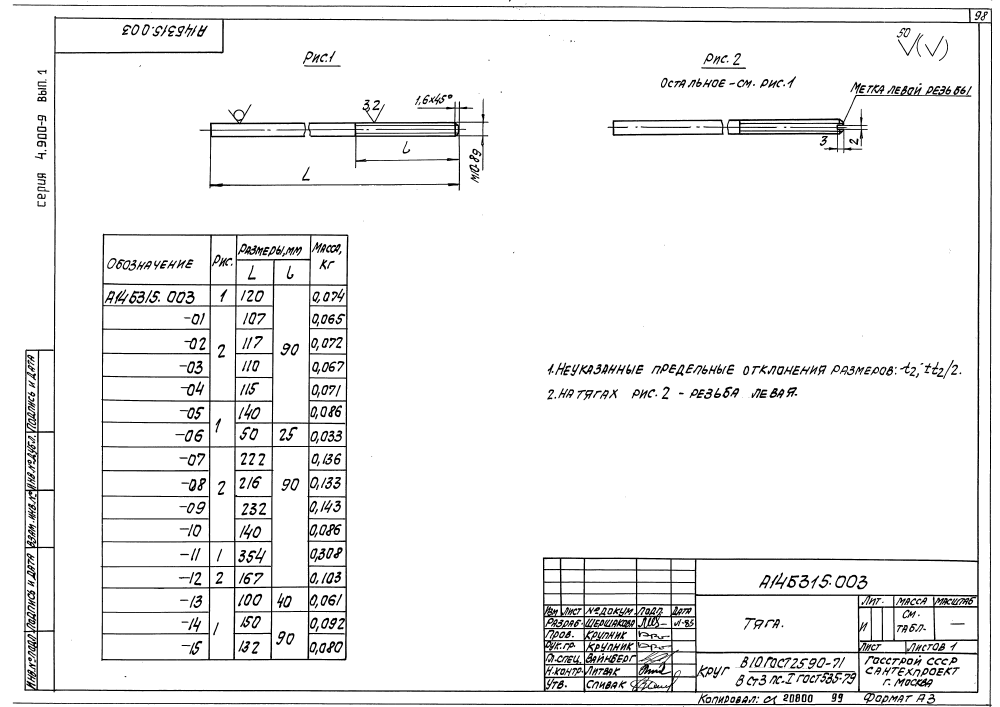 98
А14Б315.003
серия 4.900-9 вып. 1
Рис.1
1,6х45°
3,2
l
L
М10-8g
50
Рис. 2
Остальное - см. рис.1
Метка левой резьбы
3
2
Обозначение Рис. Размеры, мм Масса, кг
L l
А14Б315.003 1 120 90 0,074
-01 2 107 0,065
-02 117 0,072
-03 110 0,067
-04 115 0,071
-05 1 140 0,086
-06 50 25 0,033
-07 2 222 90 0,136
-08 216 0,133
-09 232 0,143
-10 140 0,086
-11 1 354 0,308
-12 2 167 0,103
-13 1 100 40 0,061
-14 150 90 0,092
-15 132 0,080
1. Неуказанные предельные отклонения размеров: -t2; ±t2/2.
2. На тягах рис. 2 - резьба левая.
Инв.№ подл. Подпись и дата Взам. инв.№ Инв.№ дубл. Подпись и дата
А14Б315.003
Изм Лист № докум. Подп. Дата
Разраб. Шершакова VI-85
Пров. Крупник
Рук.гр. Крупник
Гл.спец. Вайнберг
Н.контр. Литвак
Утв. Спивак
Тяга.
Лит. Масса Масштаб
И см. табл. —
Лист Листов 1
Круг В10 ГОСТ 2590-71
В Ст3 пс-I ГОСТ 535-79
Госстрой СССР
Сантехпроект
г. Москва
Копировал: 20800 99 Формат А3